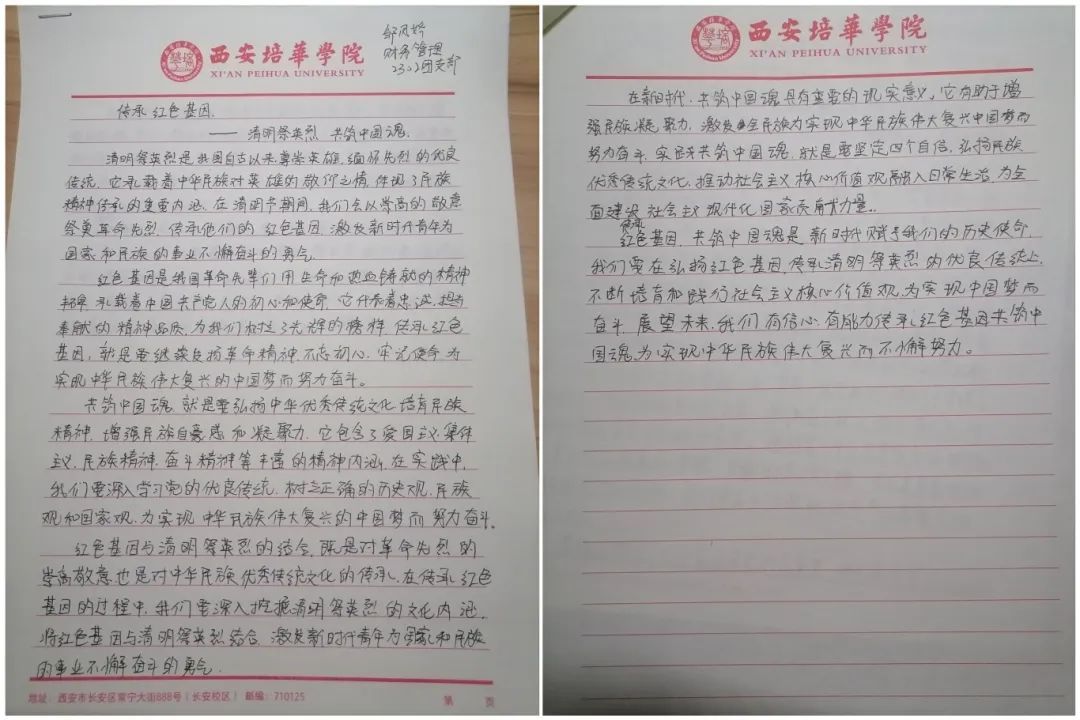 西安培華學院
XI'AN PEIHUA UNIVERSITY
邹凤娇
财务管理
2302团支部
传承红色基因.
——清明祭英烈 共筑中国魂.
清明祭英烈是我国自古以来尊崇英雄,缅怀先烈的优良
传统.它承载着中华民族对英雄的敬仰之情,体现了民族
精神传承的重要内涵.在清明节期间,我们会以崇高的敬意
祭奠革命先烈,传承他们的红色基因,激发新时代青年为
国家和民族的事业不懈奋斗的勇气
红色基因是我国革命先辈们用生命和热血铸就的精神
承载着中国共产党人的初心和使命,它代表着忠诚,担当
奉献的精神品质,为我们树立了光辉的榜样.传承红色
基因,就是要继续发扬革命精神,不忘初心,牢记使命,为
实现中华民族伟大复兴的中国梦而努力奋斗。
共筑中国魂.就是要弘扬中华优秀传统文化,培育民族
精神.增强民族自豪感和凝聚力.它包含了爱国主义,集体
主义.民族精神.奋斗精神等丰富的精神内涵.在实践中,
我们要深入学习党的优良传统.树立正确的历史观.民族
观和国家观.为实现中华民族伟大复兴的中国梦而努力奋斗。
红色基因与清明祭英烈的结合,既是对革命先烈的
崇高敬意,也是对中华民族优秀传统文化的传承.在传承红色
基因的过程中,我们要深入挖掘清明祭英烈的文化内涵.
将红色基因与清明祭英烈结合.激发新时代青年为国家和民族
的事业不懈奋斗的勇气.
地址:西安市长安区常宁大街888号(长安校区) 邮编:710125
第 页
西安培華學院
XI'AN PEIHUA UNIVERSITY
在新时代,共筑中国魂具有重要的现实意义,它有助于增
强民族凝聚力,激发全民族为实现中华民族伟大复兴中国梦而
努力奋斗.实践共筑中国魂,就是要坚定四个自信,弘扬民族
优秀传统文化,推动社会主义核心价值观融入日常生活,为全
面建设社会主义现代化国家贡献力量.
传承红色基因,共筑中国魂是新时代赋予我们的历史使命,
我们要在弘扬红色基因,传承清明祭英烈的优良传统上,
不断培育和践行社会主义核心价值观,为实现中国梦而
奋斗.展望未来,我们有信心,有能力传承红色基因共筑中
国魂,为实现中华民族伟大复兴而不懈努力。